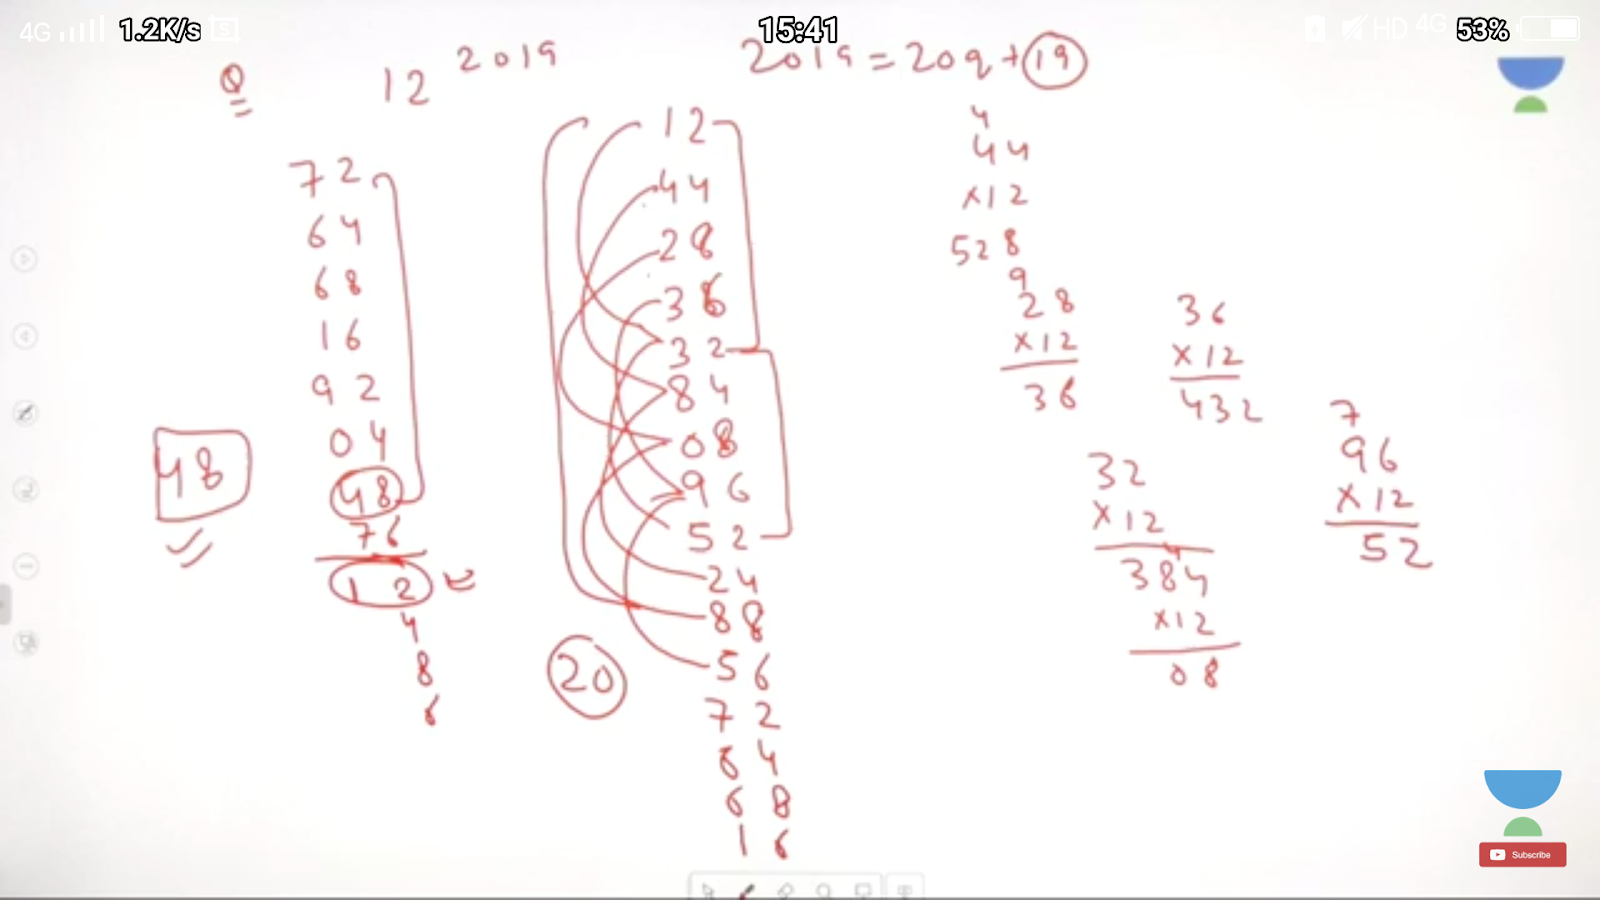 4G 1.2K/s 15:41 HD 4G 53%
Q 12 2019 2019 = 20q + 19
72
64
68
16
92
04
48
76
12
4
8
6
48
12
44
28
36
32
84
08
96
52
24
88
56
72
64
68
16
20
4
44
×12
528
9
28
×12
36
36
×12
432
32
×12
384
×12
08
7
96
×12
52
Subscribe